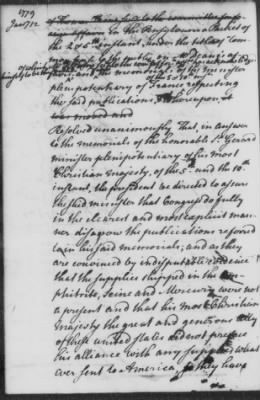 1779
Jany 12
of Thomas Paine
in the Pennsylvania Packet of
the 2d & 5th instant, under the title of "Com-
and the memorials of the minister
plenipotentiary of France respecting
the said publications, Whereupon, it
was moved and
Resolved unanimously that in answer
to the memorials of the honorable Sr. Gerard
minister plenipotentiary of his most
Christian majesty, of the 5th. and the 10th
instant, the president be directed to assure
the said minister that Congress do fully
in the clearest and most explicit man-
ner disavow the publications referred
to in his said memorials; and as they
are convinced by indisputable evidence
that the supplies shipped in the Am-
phitrite, Seine and Mercury were not
a present and that his most Christian
Majesty the great and generous ally
of these united states did not preface
his alliance with any supplies what
ever sent to America, so they have